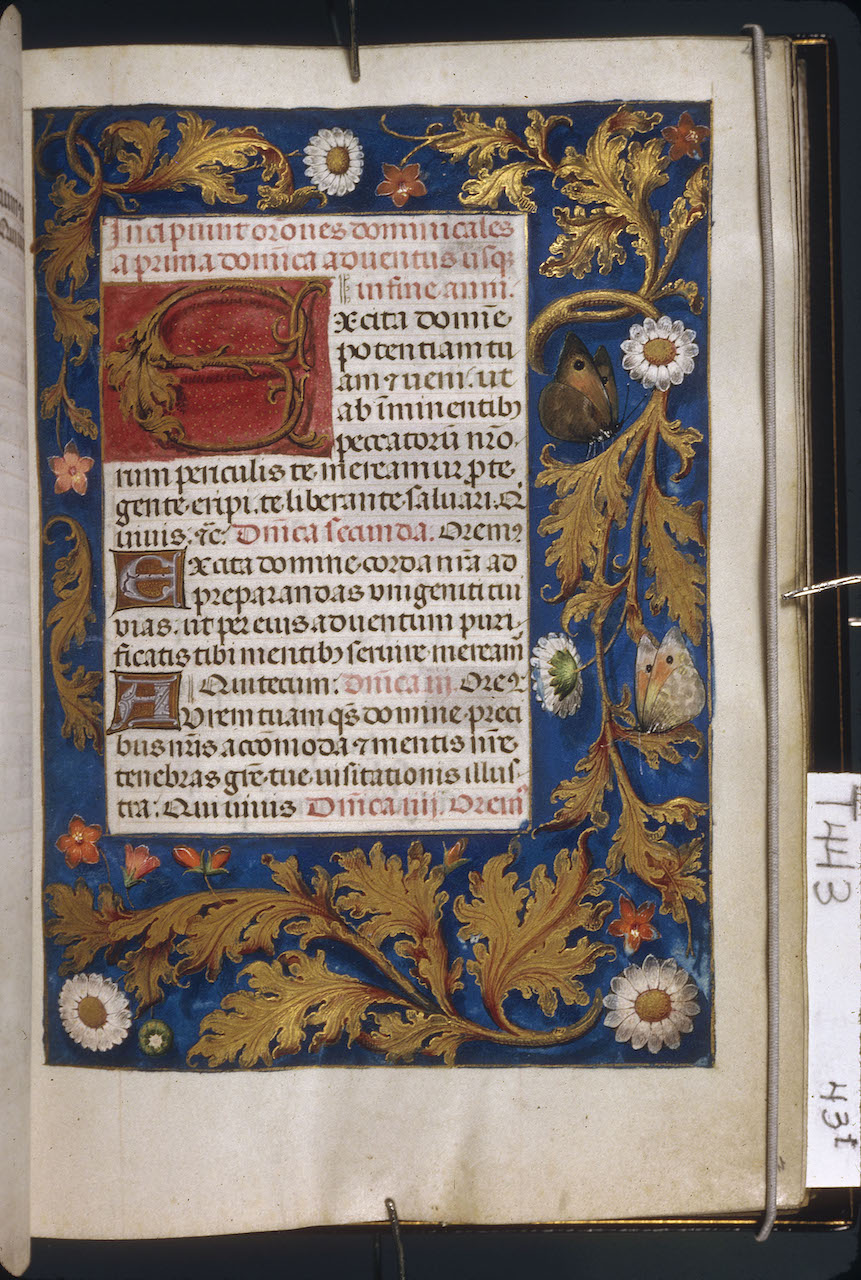 Incipiunt or̄ones dominicales
a prima domīca adventus usq
in fine anni.
Excita domīe
potentiam tu
am ⁊ ueni. ut
ab īminentib
peccatorū nr̄o
rum periculis te mereamur ꝓte
gente eripi. te liberante saluari. Q
iuiuis. ⁊c̄. Dn̄ica secunda. Oremꝰ
Excita domine corda nr̄a ad
preparandas vnigeniti tui
vias. ut per eius aduentum puri
ficatis tibi mentibꝫ seruire meream̄
Qui tecum: Dn̄ica iij. Oremꝰ
Aurem tuam qs̄ domine preci
bus nr̄is accōmoda ⁊ mentis nr̄e
tenebras gr̄e tue uisitationis illus
tra: Qui uiuis Dn̄ica iiij. Orem̄
T443
43r